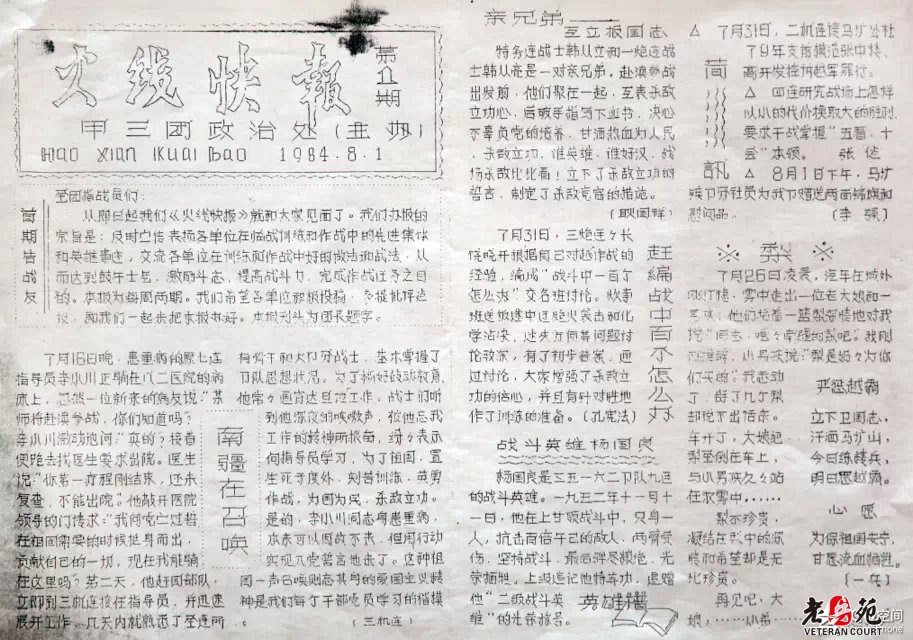 火线快报
第1期
甲三团政治处(主办)
Huo xian Kuai bao 1984.8.1
首期告战友
全团指战员们:
从即日起我们《火线快报》就和大家见面了。我们办报的
宗旨是:及时宣传表扬各单位在临战训练和作战中的先进集体
和英雄事迹,交流各单位在训练和作战中好的做法和战法,从
而达到鼓干士气,激励斗志,提高战斗力,完成作战任务之目
的。本报为每周两期。我们希望各单位积极投稿,多提批评建
议,和我们一起来把本报办好。本报刊头为团长题字。
南疆在召唤
7月16日晚,患重病的原七连
指导员李小川正躺在八二医院的病
床上,忽然一位新来的病友说"某
师将赴滇参战,你们知道吗?
李小川激动地问"真的?接着
便跑去找医生要求出院。医生
说"你第一疗程刚结束,还未
复查,不能出院。"他敲开医院
领导的门请求:"我向党亡过誓
在祖国需要的时候挺身而出,
贡献自己的一切,现在我能躺
在这里吗?第二天,他赶回部队,
立即到三机连接任指导员,并迅速
展开工作。几天内就熟悉了全连所
有骨干和大部份战士,基本掌握了
部队思想状况。为了搞好鼓动教育,
他常々画宵达旦地工作,战士们听
到他深夜的咳嗽声,被他忘我
工作的精神所振奋,纷々表示
向指导员学习,为了祖国,置
生死于度外,刻苦训练,英勇
作战,为国为民,杀敌立功。
是的,李小川同志身患重病,
本来可以留故不去,但用行动
实现入党誓言他去了。这种祖
国一声召唤则忘其身的爱国主义精
神是我们每个干部党员学习的楷模
(三机连)
亲兄弟——
互立报国志
特务连战士韩从立和一炮连战
士韩从亮是一对亲兄弟,赴滇参战
出发前,他们聚在一起,互表杀敌
立功心,后破手指写下血书,决心
不辜负党的培养,甘洒热血为人民
,杀敌立功,谁英雄,谁好汉,战
场杀敌比比高!立下了杀敌立功的
誓言,制定了杀敌竞赛的措施。
(耿国祥)
赶编战中百个怎么办
7月31日,三炮连々长
饶晓开根据自己对越作战的
经验,编成"战斗中一百个
怎么办"交各班讨论。炊事
班送饭途中遇炮火袭击和化
学沾染,迷失方向等问题讨
论较深,有了初步答案,通
过讨论,大家增强了杀敌立
功的信心,并且有针对性地
作了训练的准备。(孔宪法)
战斗英雄杨国良
杨国良是三五一六二部队九连
的战斗英雄。一九五二年十一月十
一日,他在上甘岭战斗中,只身一
人,抗击百倍于己的敌人,两臂受
伤,坚持战斗,最后弹尽粮绝,光
荣牺牲。上级追记他特等功,追赠
他"二级战斗英
雄"的光荣称号。
英雄谱
简讯
△ 7月31日,二机连请马圹公社
79年支前模范张中棱、
高开发控拆越军罪行。
△ 四连研究战场上怎样
以小的代价换取大的胜利,
要求干战掌握"五智,十
会"本领。 张健
△ 8月1日下午,马圹
镇卫牙社员为我部赠送两面锦旗和
慰问品。 (李强)
※ 梨 ※
7月26日凌晨,汽车在城外
刚打住,雾中走出一位老大娘和一
说"同志,
与小吴夹久々站
在浓雾中,……
梨亦珍贵,
凝结在梨中的深
情和希望却是无
比珍贵。
再见吧,大
娘,……小弟
严惩越霸
立下卫国志,
汗洒马圹山,
今日练精兵,
明日惩越霸。
心愿
为保祖国安宁,
甘愿流血牺牲。
(一兵)
老兵苑
VETERAN COURT